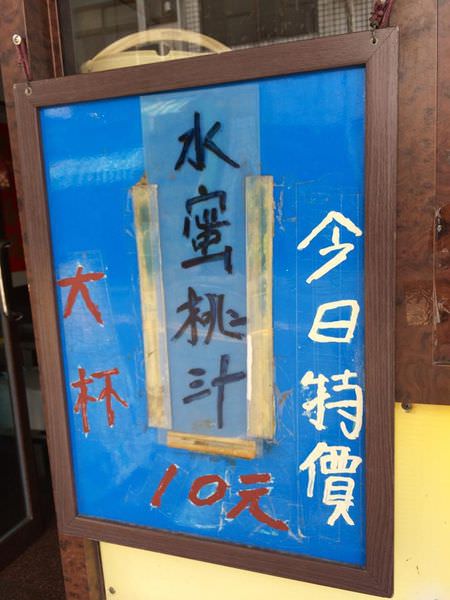 今日特價
水蜜桃汁
大杯
10元